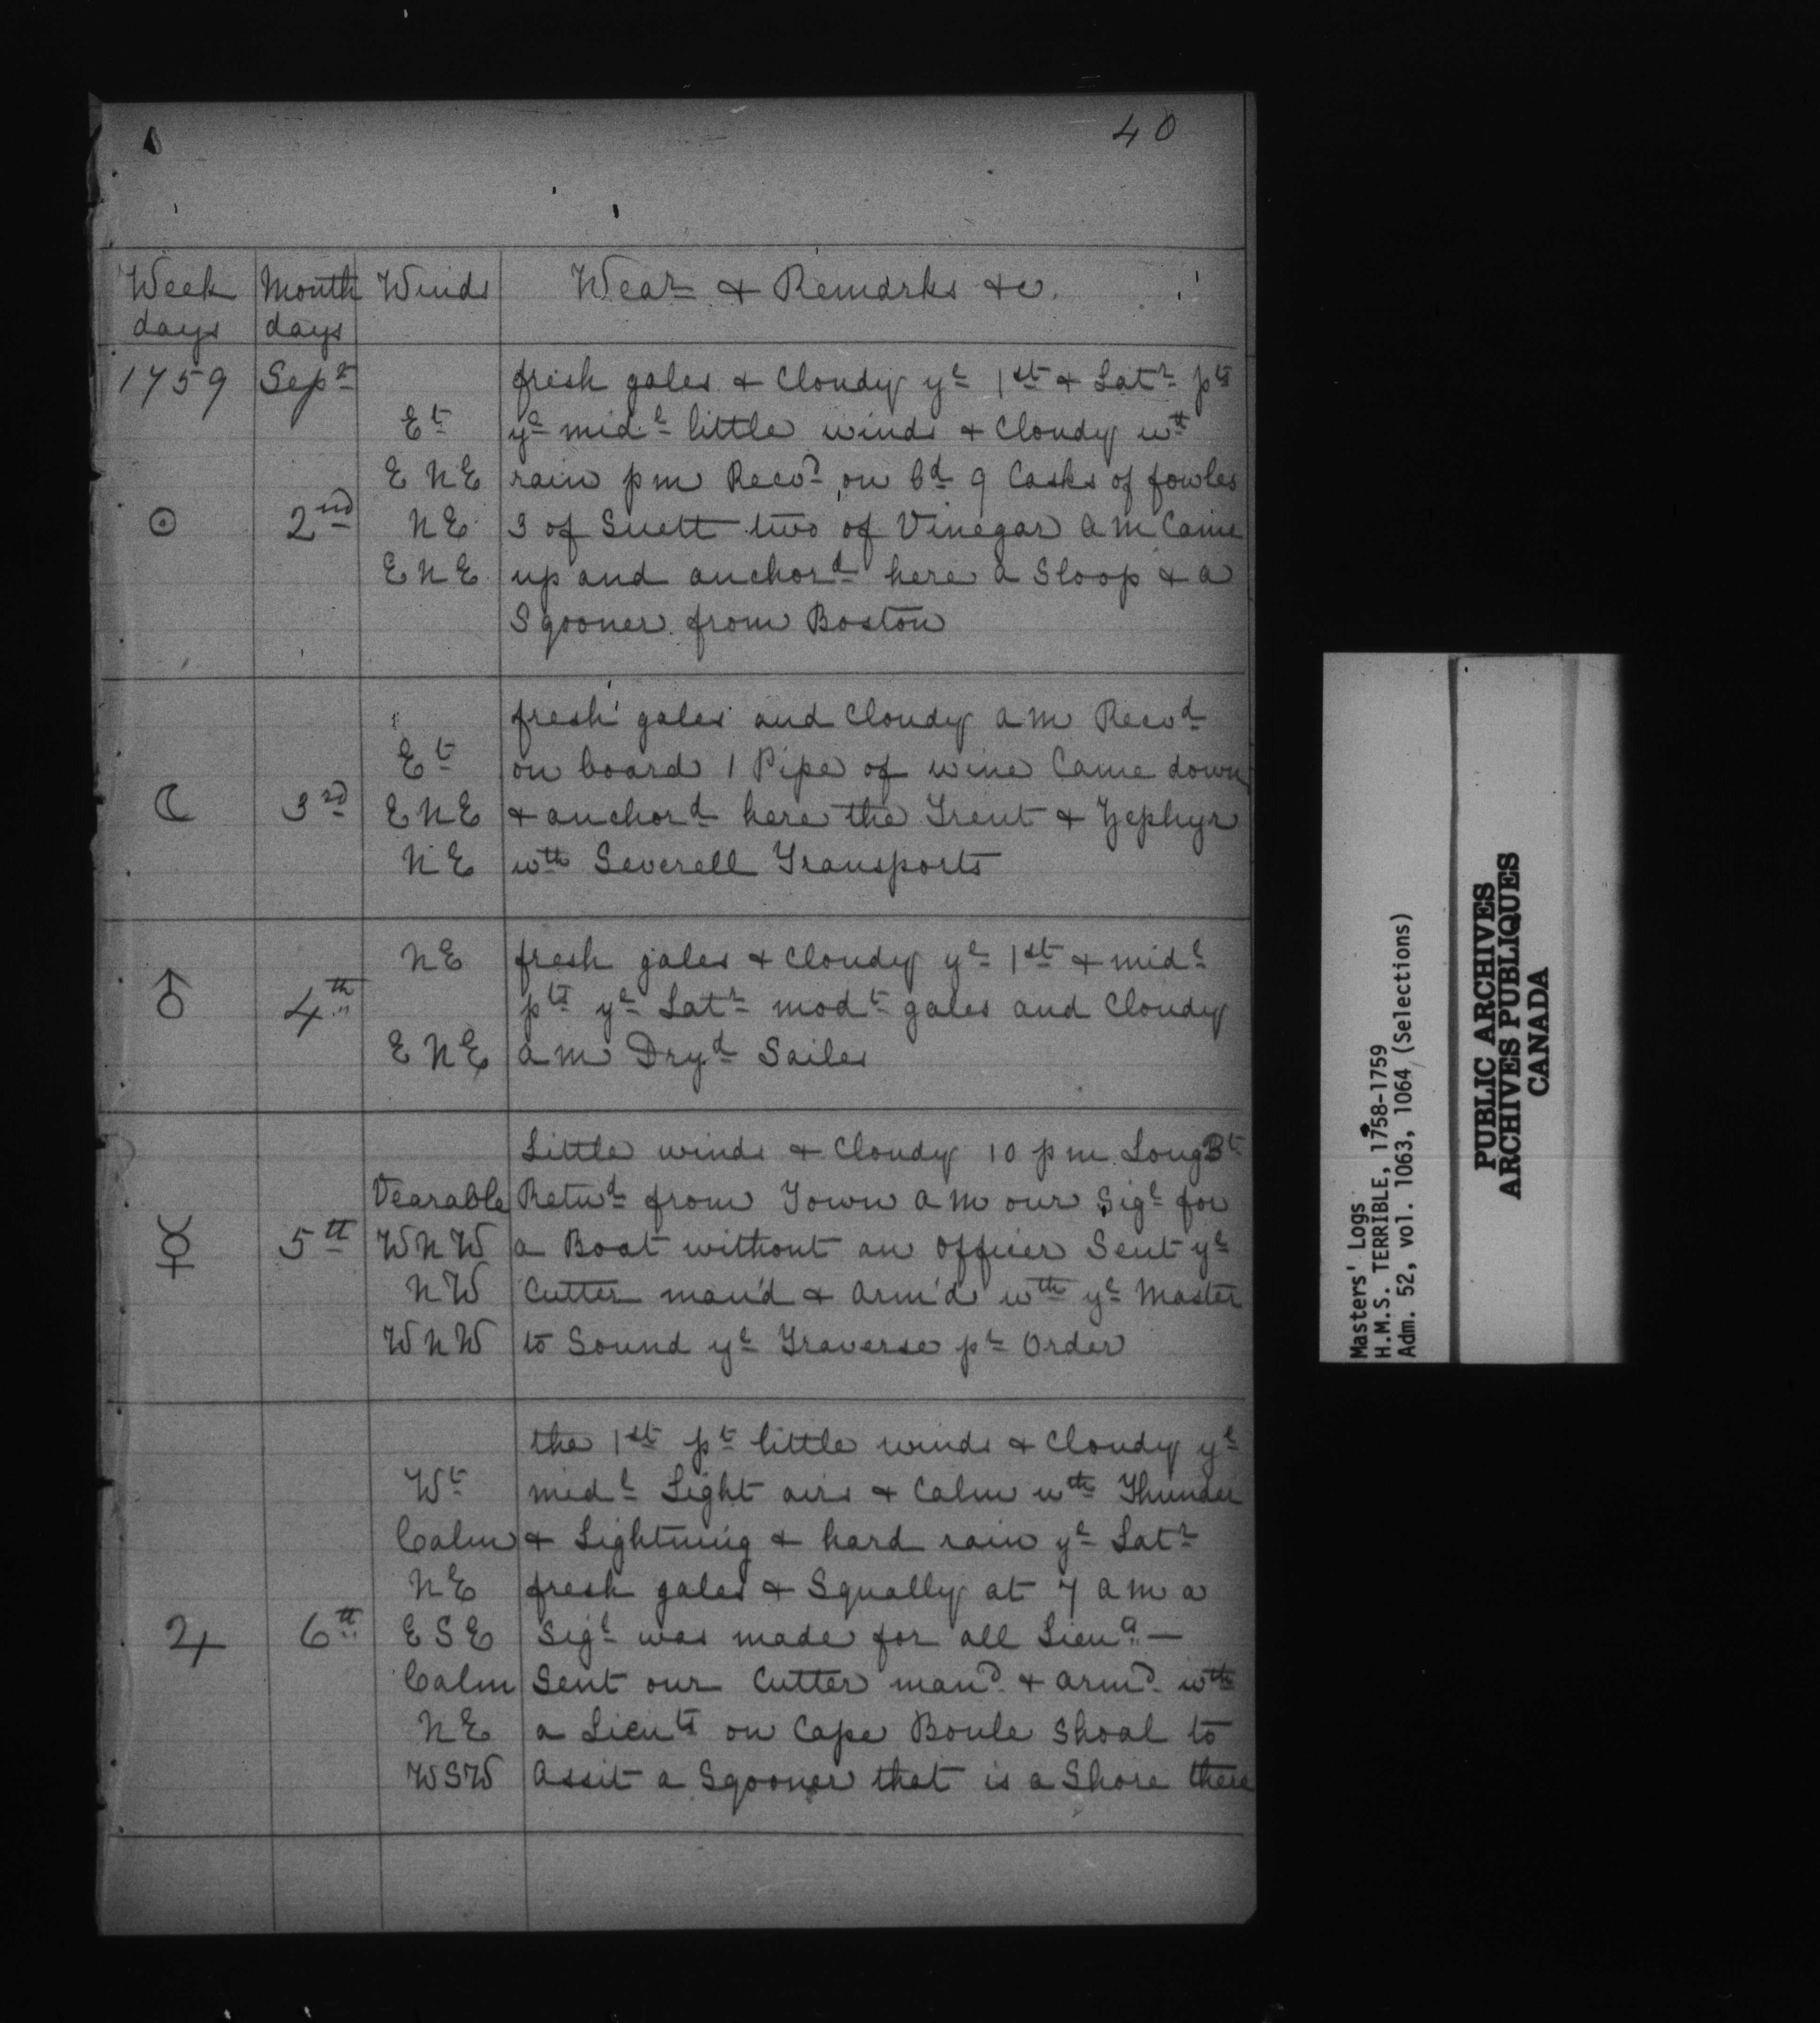 40
Week days Month days Winds Wear & Remarks &c.
1759 Sepr fresh gales & Cloudy ye 1st & Latr pts
Et ye midle little winds & Cloudy wth
E N E rain p m Recd on bd 9 Casks of fowles
☉ 2nd N E 3 of Suett two of Vinegar A M Came
E N E up and anchord here a Sloop & a
Sgooner from Boston
fresh gales and Cloudy A M Recvd
Et on board 1 Pipe of wine Came down
☾ 3rd E N E & anchord here the Trent & Zephyr
N E wth Severell Transports
N E fresh gales & Cloudy ye 1st & midle
♂ 4th pts ye Latr modt gales and Cloudy
E N E A M Dryd Sailes
Little winds & Cloudy 10 p m Long Bt
Vearable Retud from Town A M our Sigl for
☿ 5th W N W a Boat without an Officer Sent ye
N W Cutter man'd & Arm'd wth ye Master
W N W to Sound ye Traverse pr Order
the 1st pt little winds & Cloudy ye
Wt midl Light airs & Calm wth Thunder
Calm & Lightning & hard rain ye Latr
N E fresh gales & Squally at 7 A M a
♃ 6th E S E Sigl was made for all Lieu —
Calm Sent our Cutter mand & armd wth
N E a Lieuts on Cape Boule Shoal to
W S W Assit a Sgooner that is a Shore there
Masters' Logs
H.M.S. TERRIBLE, 1758-1759
Adm. 52, vol. 1063, 1064 (Selections)
PUBLIC ARCHIVES
ARCHIVES PUBLIQUES
CANADA